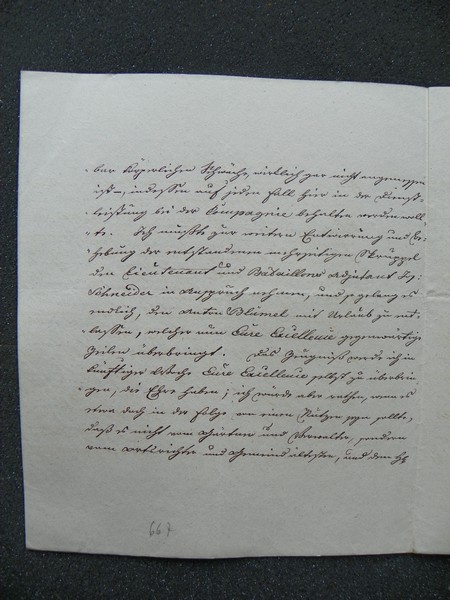 bar körperlichen Schwäche, wirklich gar nicht angemessen
ist –, indessen auf jeden Fall hier in der Dienst-
leistung bei der Compagnie behalten werden woll-
te. Ich mußte zur weitern Entwirrung und Be-
hebung der entstandenen mehrseitigen Skruppel
den Lieutenant und Bataillons Adjutant H:
Schneider in Anspruch nehmen, und so gelang es
endlich, den Anton Blümel mit Urlaub zu ent-
lassen, welcher nun Eure Excellenz gegenwärtige
Zeilen überbringt. Das Zeugniß werde ich in
künftiger Woche Eure Excellenz selbst zu überbrin-
gen, die Ehre haben; ich würde aber rathen, wenn es
etwa doch in der Folge von einen Nutzen seyn sollte,
daß es nicht vom Gärtner und Verwalter, sondern
vom Ortsrichter und Gemeindältesten, und dem H
667